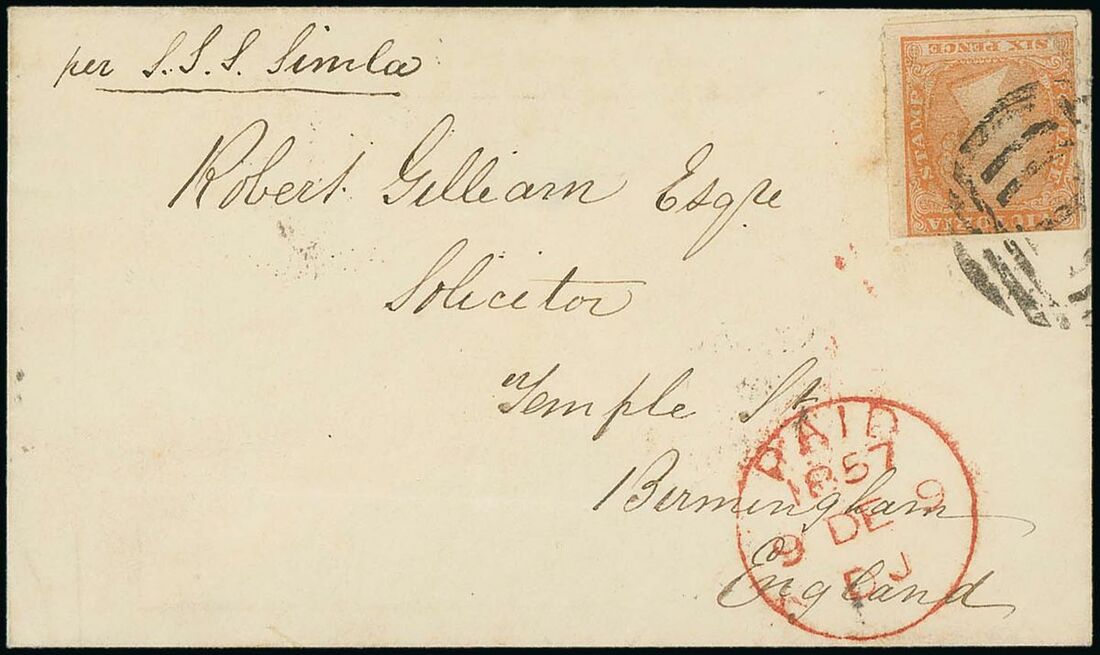 per S.S.S. Simla
SIX PENCE
STAMP
POSTAGE
VICTORIA
Robert Gilliam Esqre
Solicitor
Temple St
Birmingham
England
PAID
1857
9 DE 9